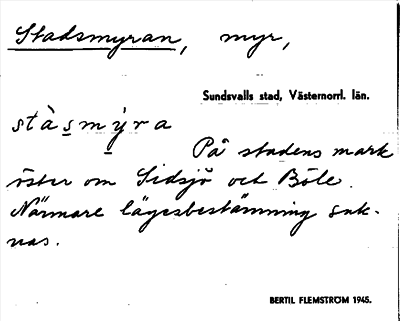 Stadsmyran, myr,
Sundsvalls stad, Västernorrl. län.
stàsmýra
På stadens mark
öster om Sidsjö och Böle.
Närmare lägesbestämning sak-
nas.
BERTIL FLEMSTRÖM 1945.